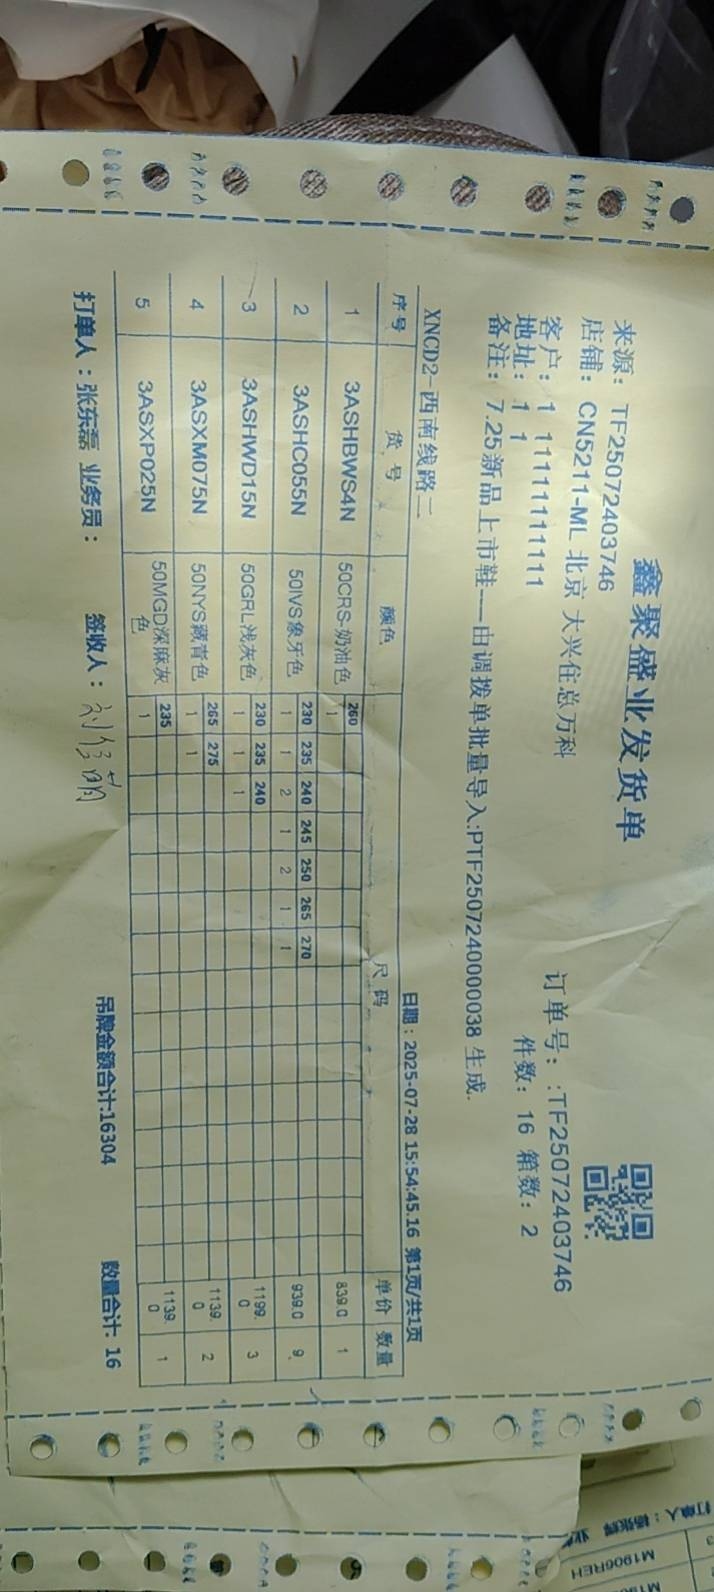 鑫聚盛业发货单
来源：TF25072403746
订单号：:TF25072403746
店铺：CN5211-ML 北京 大兴住总万科
件数：16 箱数：2
客户：1 11111111111
地址：1 1
备注：7.25新品上市鞋---由调拨单批量导入:PTF2507240000038 生成.
XNCD2-西南线路二
日期：2025-07-28 15:54:45.16 第1页/共1页
序号 货 号 颜色 尺 码 单价 数量
260
1 3ASHBWS4N 50CRS-奶油色 1 839.0 1
230 235 240 245 250 265 270
2 3ASHC055N 50IVS象牙色 1 1 2 1 2 1 1 939.0 9
230 235 240
3 3ASHWD15N 50GRL浅灰色 1 1 1 1199.0 3
265 275
4 3ASXM075N 50NYS藏青色 1 1 1139.0 2
235
5 3ASXP025N 50MGD深麻灰色 1 1139.0 1
打单人：张东磊 业务员： 签收人： 吊牌金额合计:16304 数量合计: 16
打单人：
M1906REH